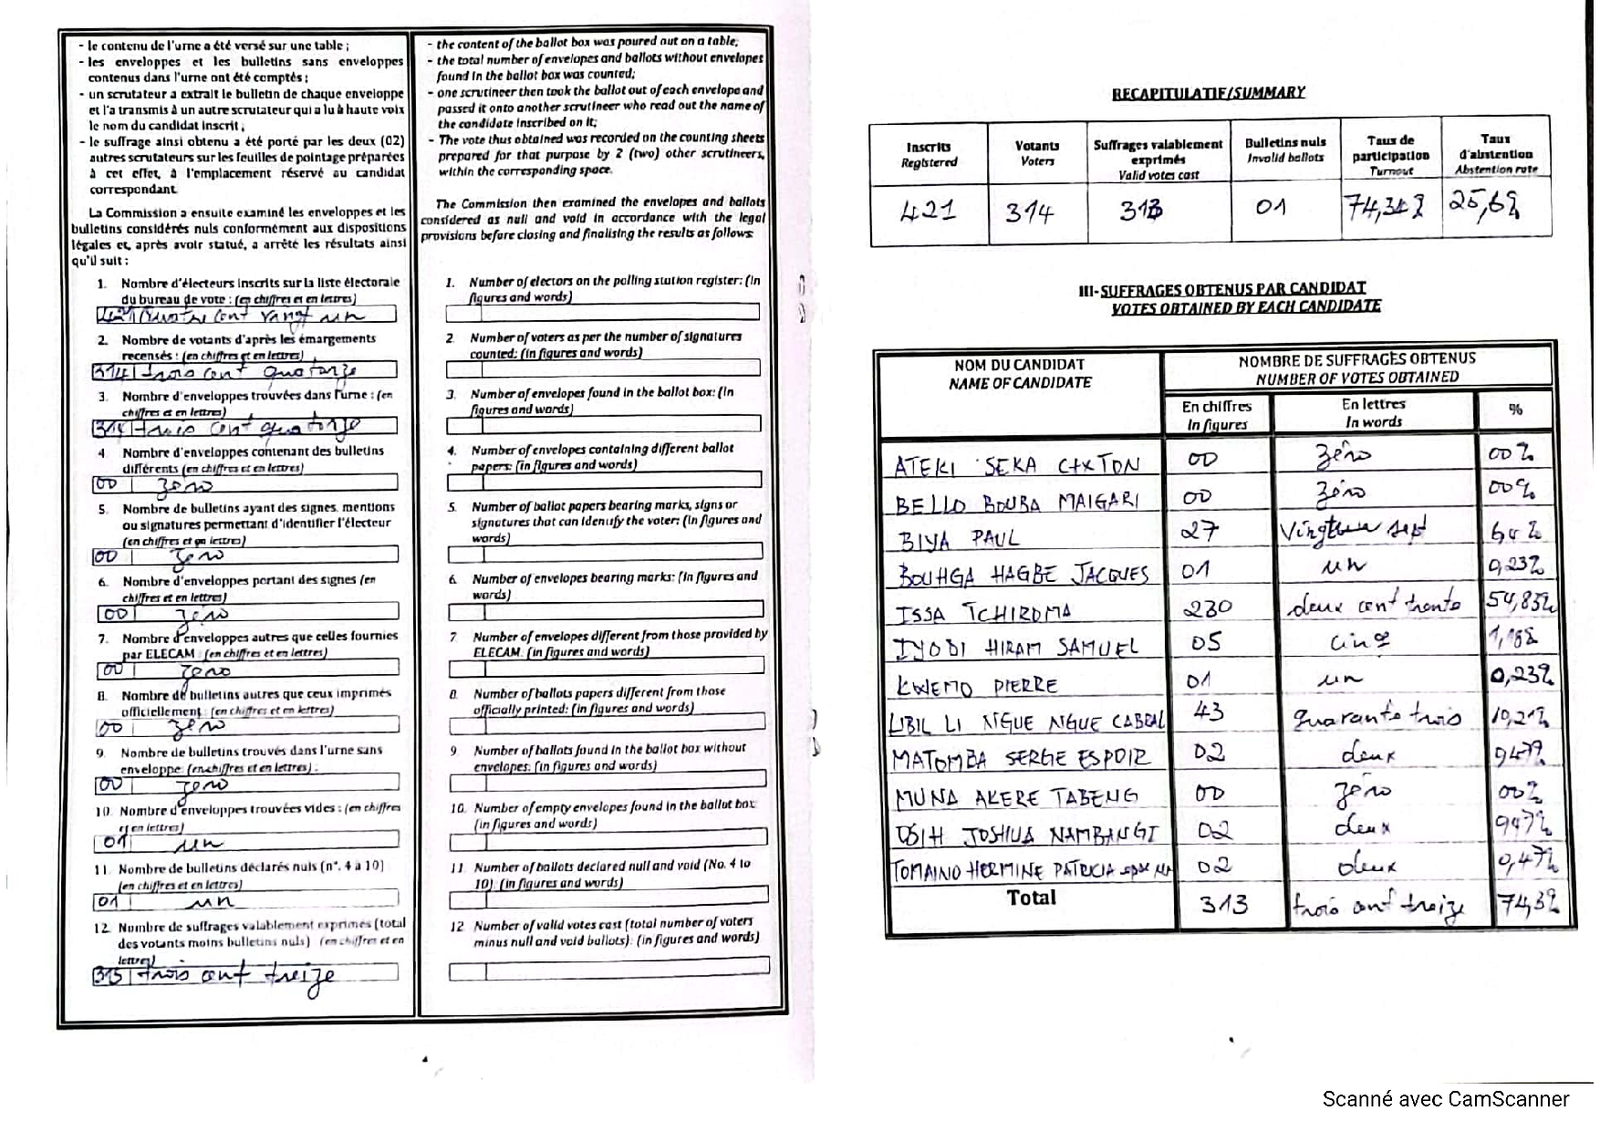 - le contenu de l'urne a été versé sur une table ;
- les enveloppes et les bulletins sans enveloppes
contenus dans l'urne ont été comptés ;
- un scrutateur a extrait le bulletin de chaque enveloppe
et l'a transmis à un autre scrutateur qui a lu à haute voix
le nom du candidat inscrit ;
- le suffrage ainsi obtenu a été porté par les deux (02)
autres scrutateurs sur les feuilles de pointage préparées
à cet effet, à l'emplacement réservé au candidat
correspondant.
La Commission a ensuite examiné les enveloppes et les
bulletins considérés nuls conformément aux dispositions
légales et, après avoir statué, a arrêté les résultats ainsi
qu'il suit :
1. Nombre d'électeurs inscrits sur la liste électorale
du bureau de vote : (en chiffres et en lettres)
421 Quatre cent vingt un
2. Nombre de votants d'après les émargements
recensés : (en chiffres et en lettres)
314 trois cent quatorze
3. Nombre d'enveloppes trouvées dans l'urne : (en
chiffres et en lettres)
314 trois cent quatorze
4. Nombre d'enveloppes contenant des bulletins
différents (en chiffres et en lettres)
00 zéro
5. Nombre de bulletins ayant des signes, mentions
ou signatures permettant d'identifier l'électeur
(en chiffres et en lettres)
00 zéro
6. Nombre d'enveloppes portant des signes (en
chiffres et en lettres)
00 zéro
7. Nombre d'enveloppes autres que celles fournies
par ELECAM : (en chiffres et en lettres)
00 zéro
8. Nombre de bulletins autres que ceux imprimés
officiellement : (en chiffres et en lettres)
00 zéro
9. Nombre de bulletins trouvés dans l'urne sans
enveloppe (en chiffres et en lettres) :
00 zéro
10. Nombre d'enveloppes trouvées vides : (en chiffres
et en lettres)
01 un
11. Nombre de bulletins déclarés nuls (n°. 4 à 10)
(en chiffres et en lettres)
01 un
12. Nombre de suffrages valablement exprimés (total
des votants moins bulletins nuls) (en chiffres et en
lettres)
313 trois cent treize
- the content of the ballot box was poured out on a table;
- the total number of envelopes and ballots without envelopes
found in the ballot box was counted;
- one scrutineer then took the ballot out of each envelope and
passed it onto another scrutineer who read out the name of
the candidate inscribed on it;
- The vote thus obtained was recorded on the counting sheets
prepared for that purpose by 2 (two) other scrutineers,
within the corresponding space.
The Commission then examined the envelopes and ballots
considered as null and void in accordance with the legal
provisions before closing and finalising the results as follows:
1. Number of electors on the polling station register: (in
figures and words)
2. Number of voters as per the number of signatures
counted: (in figures and words)
3. Number of envelopes found in the ballot box: (in
figures and words)
4. Number of envelopes containing different ballot
papers: (in figures and words)
5. Number of ballot papers bearing marks, signs or
signatures that can identify the voter: (in figures and
words)
6. Number of envelopes bearing marks: (in figures and
words)
7. Number of envelopes different from those provided by
ELECAM: (in figures and words)
8. Number of ballots papers different from those
officially printed: (in figures and words)
9. Number of ballots found in the ballot box without
envelopes: (in figures and words)
10. Number of empty envelopes found in the ballot box
(in figures and words)
11. Number of ballots declared null and void (No. 4 to
10): (in figures and words)
12. Number of valid votes cast (total number of voters
minus null and void ballots): (in figures and words)
RECAPITULATIF/SUMMARY
Inscrits Registered | Votants Voters | Suffrages valablement exprimés Valid votes cast | Bulletins nuls Invalid ballots | Taux de participation Turnout | Taux d'abstention Abstention rate
421 314 313 01 74,3% 25,6%
III- SUFFRAGES OBTENUS PAR CANDIDAT
VOTES OBTAINED BY EACH CANDIDATE
NOM DU CANDIDAT NOMBRE DE SUFFRAGES OBTENUS
NAME OF CANDIDATE NUMBER OF VOTES OBTAINED
En chiffres En lettres %
In figures In words
ATEKI SEKA CAXTON 00 zéro 00%
BELLO BOUBA MAIGARI 00 zéro 00%
BIYA PAUL 27 Vingt sept
BOUHGA HAGBE JACQUES 01 un 0,23%
ISSA TCHIROMA 230 deux cent trente 54,83%
IYODI HIRAM SAMUEL 05 cinq 1,18%
KWEMO PIERRE 01 un 0,23%
LIBII LI NGUE NGUE CABRAL 43 quarante trois 10,21%
MATOMBA SERGE ESPOIR 02 deux 0,47%
MUNA AKERE TABENG 00 zéro 00%
OSIH JOSHUA NAMBANGI 02 deux 0,47%
TOMAINO HERMINE PATRICIA 02 deux 0,47%
Total 313 trois cent treize 74,3%
Scanné avec CamScanner